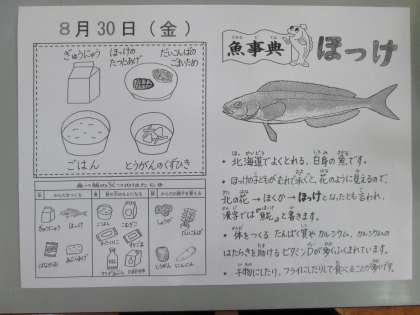 8月30日(金)
ぎゅうにゅう
ほっけの
たつたあげ
だいこんばの
ごまいため
ごはん
とうがんのくずひき
ぎゅうにゅう
ほっけ
ごはん
しょうが
魚事典
ほっけ
・北海道でよくとれる、白身の魚です。
・ほっけの子どもがむれで泳ぐと、花のように見えるので、
北の花→ほくか→ほっけとなったとも言われ、
漢字では"𩸽"と書きます。
・体をつくるたんぱく質やカルシウム、カルシウムの
はたらきを助けるビタミンDが多くふくまれています。
・干物にしたり、フライにしたりして食べることが多いです。